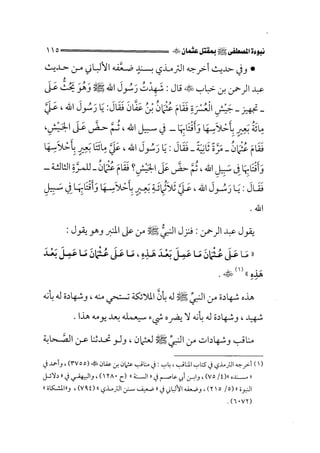 نبوءة المصطفى ﷺ بمقتل عثمان ﷺ ١١٥
• وفي حديث أخرجه الترمذي بسند ضعَّفه الألباني من حديث
عبد الرحمن بن خباب ﷺ قال: شَهِدْتُ رَسُولَ الله ﷺ وَهُوَ يَحُثُّ عَلَى
- تجهيز - جَيْشِ الْعُسْرَةِ فَقَامَ عُثْمَانُ بْنُ عَفَّانَ فَقَالَ: يَا رَسُولَ الله ، عَلَيَّ
مِائَةُ بَعِيرٍ بِأَحْلَاسِهَا وَأَقْتَابِهَا - في سبيل الله ، ثُمَّ حضَّ عَلَى الجَيْشِ،
فَقَامَ عُثْمَانُ - مَرَّةً ثَانِيَةً - فَقَالَ: يَا رَسُولَ الله ، عَلَيَّ مِائَتَا بَعِيرٍ بِأَحْلَاسِهَا
وَأَقْتَابِهَا فِي سَبِيلِ الله ، ثُمَّ حضَّ عَلَى الجَيْشِ؟ فَقَامَ عُثْمَانُ - للمرَّةِ الثالثة -
فَقَالَ: يَا رَسُولَ الله ، عَلَيَّ ثَلَاثُمِائَةِ بَعِيرٍ بِأَحْلَاسِهَا وَأَقْتَابِهَا فِي سَبِيلِ
الله .
يقول عبد الرحمن: فنزل النبيُّ ﷺ من على المنبر وهو يقول :
« مَا عَلَى عُثْمَانَ مَا عَمِلَ بَعْدَ هَذِهِ ، مَا عَلَى عُثْمَانَ مَا عَمِلَ بَعْدَ
هَذِهِ » (١) .
هذه شهادة من النبيِّ ﷺ له بأنَّ الملائكة تستحي منه ، وشهادة له بأنه
شهيد ، وشهادة له بأنه لا يضره شيء سيعمله بعد يومه هذا .
مناقب وشهادات من النبيِّ ﷺ لعثمان ، ولو تحدثنا عن الصَّحابة
(١) أخرجه الترمذي في كتاب المناقب ، باب : في مناقب عثمان بن عفان ﷺ (٣٧٥٥) ، وأحمد في
« مسنده » (٤/ ٧٥) ، وابن أبي عاصم في « السنة » (ح ١٢٨٠) ، والبيهقي في « دلائل
النبوة » (٥/ ٢١٥) ، وضعفه الألباني في « ضعيف سنن الترمذي » (٧٩٤) ، و« المشكاة »
(٦٠٧٢) .